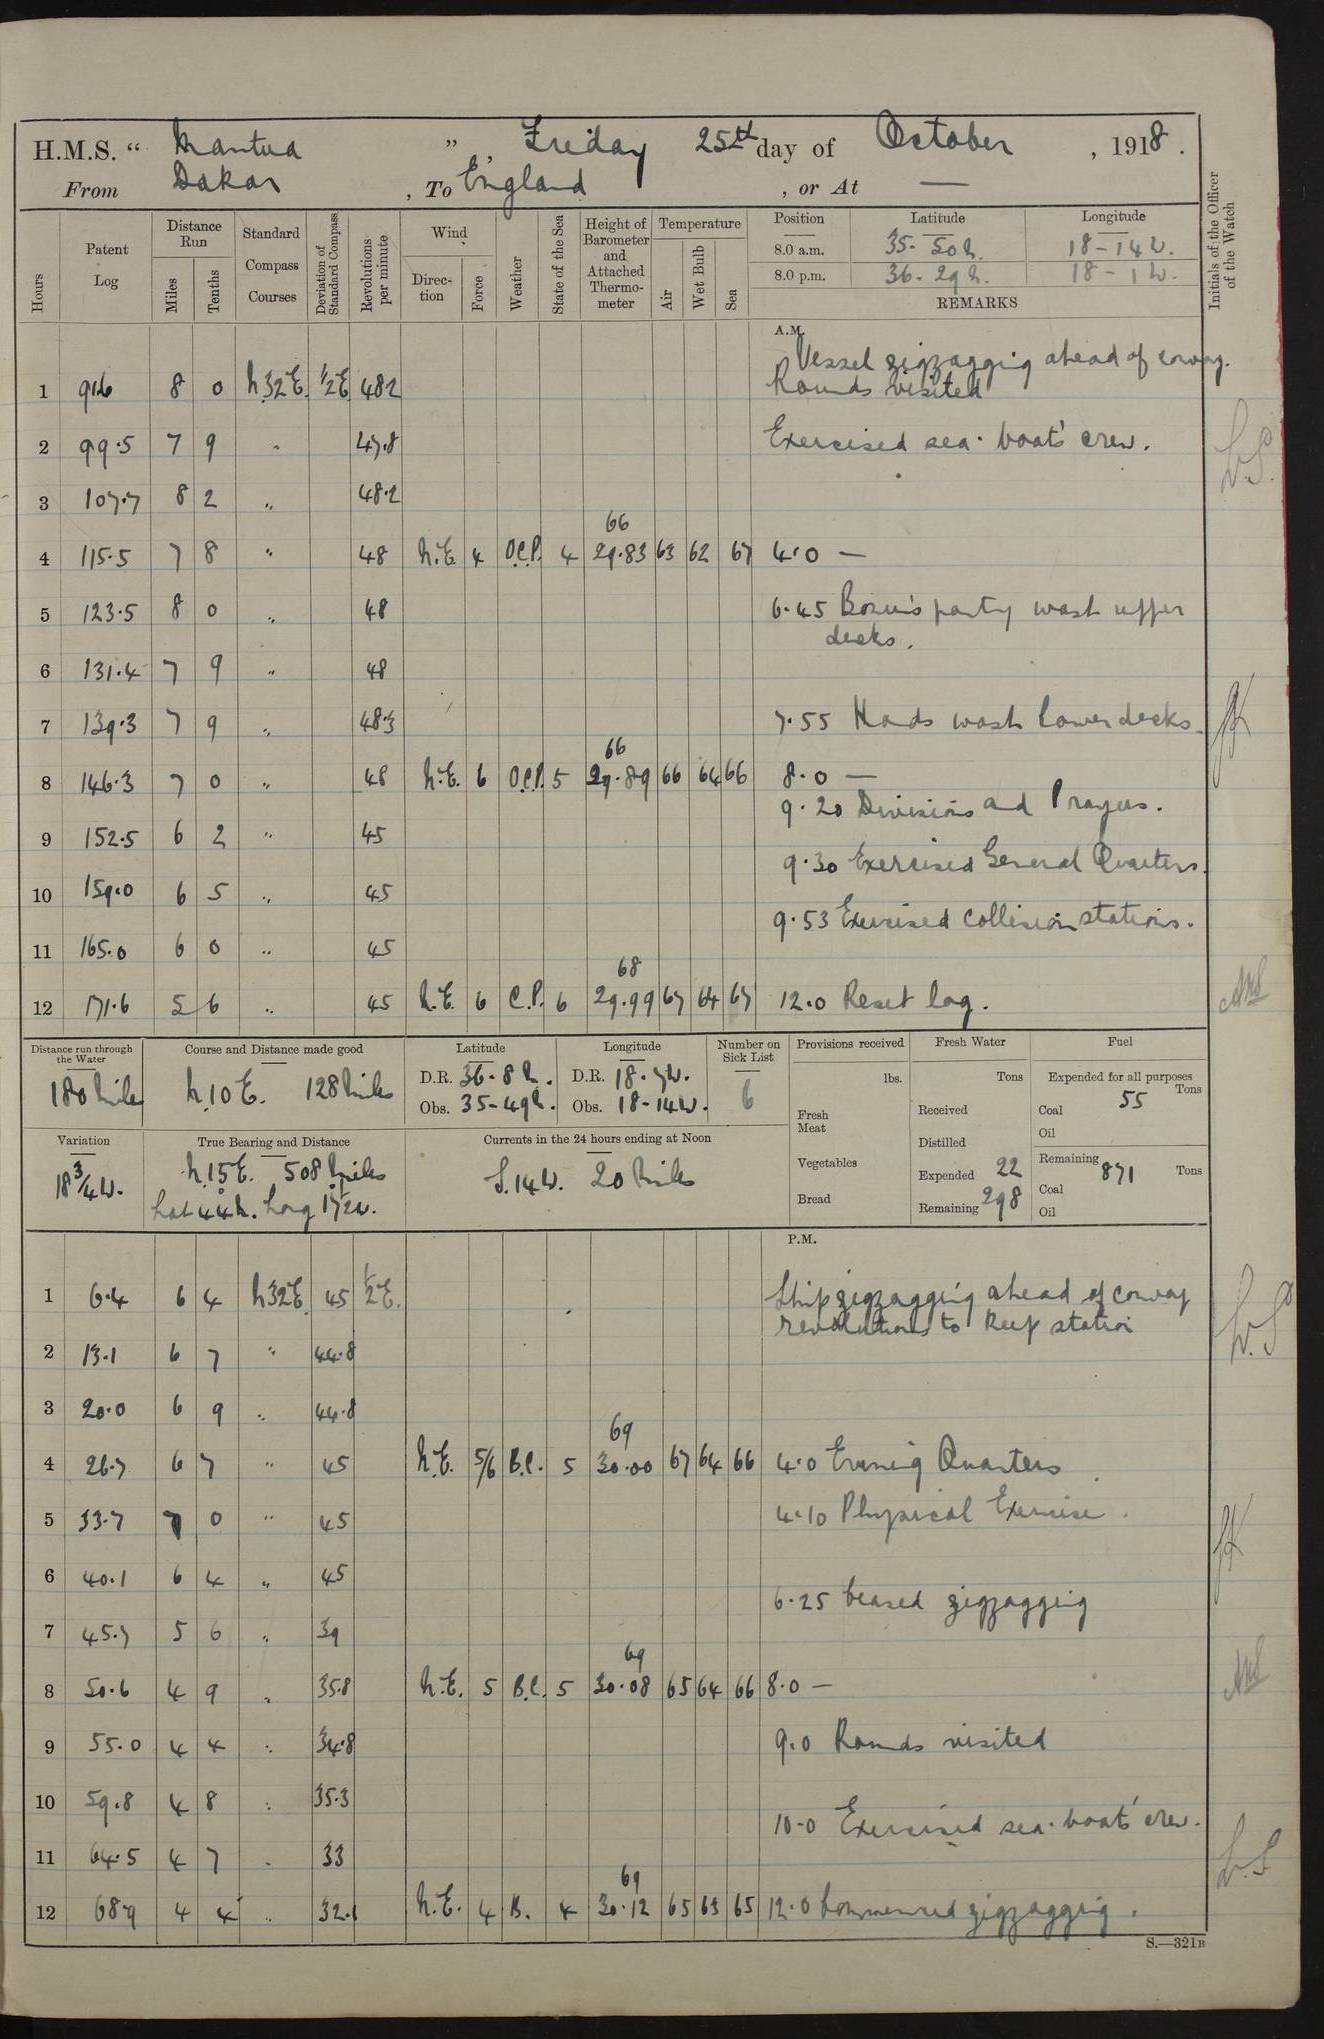 H.M.S. “ Mantua ”, Friday 25th day of October, 1918.
From Dakar, To England, or At —
Hours Patent Log Distance Run Miles Tenths Standard Compass Courses Deviation of Standard Compass Revolutions per minute Wind Direction Force Weather State of the Sea Height of Barometer and Attached Thermometer Temperature Air Wet Bulb Sea Position Latitude Longitude Initials of the Officer of the Watch
8.0 a.m. 35-50N. 18-14W.
8.0 p.m. 36-29N. 18-1W.
REMARKS
A.M.
Vessel zigzagging ahead of convoy.
1 91.6 8 0 N.32E. 1/2E 48.2 Rounds visited
2 99.5 7 9 " 47.8 Exercised sea-boats' crew.
3 107.7 8 2 " 48.2
66
4 115.5 7 8 " 48 N.E. 4 O.C.P. 4 29.83 63 62 67 4.0 —
5 123.5 8 0 " 48 6.45 Bosun's party wash upper
decks.
6 131.4 7 9 " 48
7 139.3 7 9 " 48.3 7.55 Hands wash lower decks.
66
8 146.3 7 0 " 48 N.E. 6 O.C.P. 5 29.89 66 64 66 8.0 —
9.20 Divisions and Prayers.
9 152.5 6 2 " 45
9.30 Exercised General Quarters.
10 159.0 6 5 " 45
9.53 Exercised Collision stations.
11 165.0 6 0 " 45
68
12 171.6 5 6 " 45 N.E. 6 C.P. 6 29.99 67 64 67 12.0 Reset log.
Distance run through the Water Course and Distance made good Latitude Longitude Number on Sick List Provisions received Fresh Water Fuel
180 Miles N.10E. 128 Miles D.R. 36-8N. D.R. 18-7W. 6 lbs. Tons Expended for all purposes Tons
Obs. 35-49N. Obs. 18-14W. Fresh Meat Received Coal 55
Distilled Oil
Variation True Bearing and Distance Currents in the 24 hours ending at Noon
18 3/4 W. N.15E. 508 Miles S.14W. 20 Miles Vegetables Expended 22 Remaining 871 Tons
Lat 44N. Long 17 1/2W. Bread Remaining 298 Coal
Oil
P.M.
1 6.4 6 4 N32E. 45 1/2E. Ship zigzagging ahead of convoy
revolutions to keep station
2 13.1 6 7 " 44.8
3 20.0 6 9 " 44.8
69
4 26.7 6 7 " 45 N.E. 5/6 B.C. 5 30.00 67 64 66 4.0 Evening Quarters
5 33.7 7 0 " 45 4.10 Physical Exercise.
6 40.1 6 4 " 45
6.25 Ceased zigzagging
7 45.7 5 6 " 39
69
8 50.6 4 9 " 35.8 N.E. 5 B.C. 5 30.08 65 64 66 8.0 —
9 55.0 4 4 " 34.8 9.0 Rounds visited
10 59.8 4 8 " 35.3
10-0 Exercised sea-boats' crew.
11 64.5 4 7 " 33
69
12 68.9 4 4 " 32.1 N.E. 4 B. 4 30.12 65 63 65 12.0 Commenced zigzagging.
S.—321B